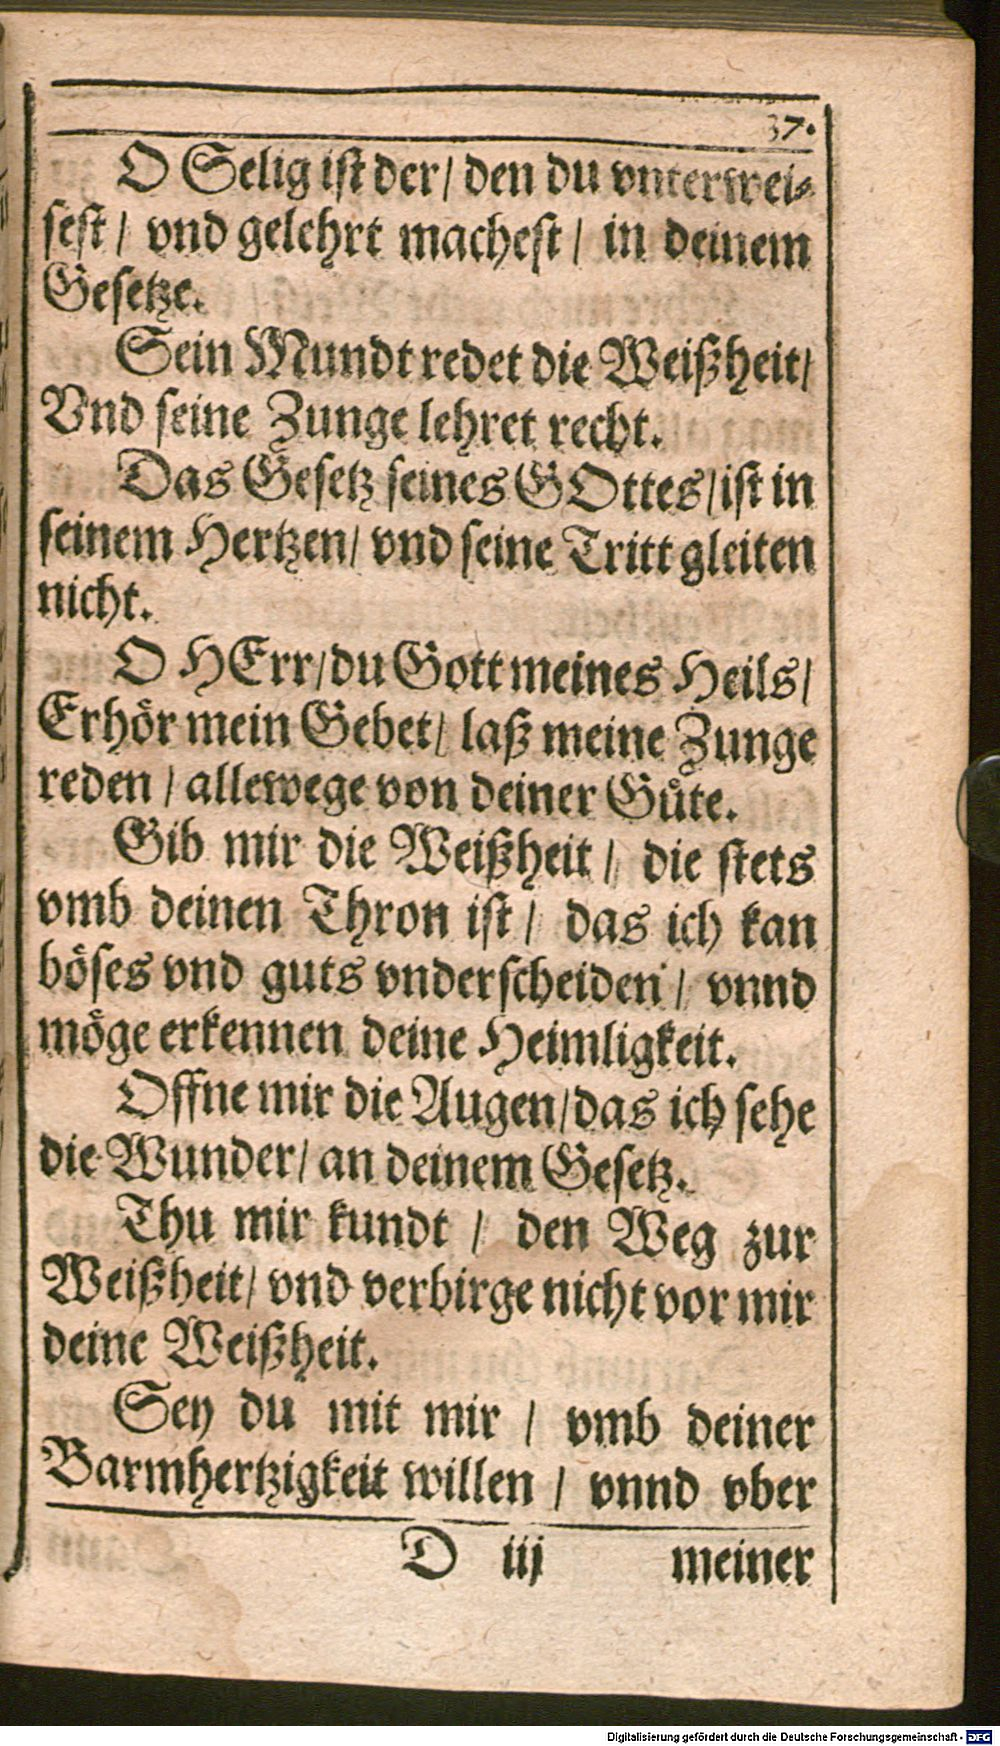 37.
O Selig ist der/ den du vnterwei⸗
sest/ vnd gelehrt machest/ in deinem
Gesetze.
Sein Mundt redet die Weißheit/
Vnd seine Zunge lehret recht.
Das Gesetz seines GOttes/ ist in
seinem Hertzen/ vnd seine Tritt gleiten
nicht.
O HErr/ du Gott meines Heils/
Erhör mein Gebet/ laß meine Zunge
reden/ allewege von deiner Guͤte.
Gib mir die Weißheit/ die stets
vmb deinen Thron ist/ das ich kan
böses vnd guts vnderscheiden/ vnnd
möge erkennen deine Heimligkeit.
Offne mir die Augen/ das ich sehe
die Wunder/ an deinem Gesetz.
Thu mir kundt/ den Weg zur
Weißheit/ vnd verbirge nicht vor mir
deine Weißheit.
Sey du mit mir/ vmb deiner
Barmhertzigkeit willen/ vnnd vber
D iij meiner
Digitalisierung gefördert durch die Deutsche Forschungsgemeinschaft - DFG